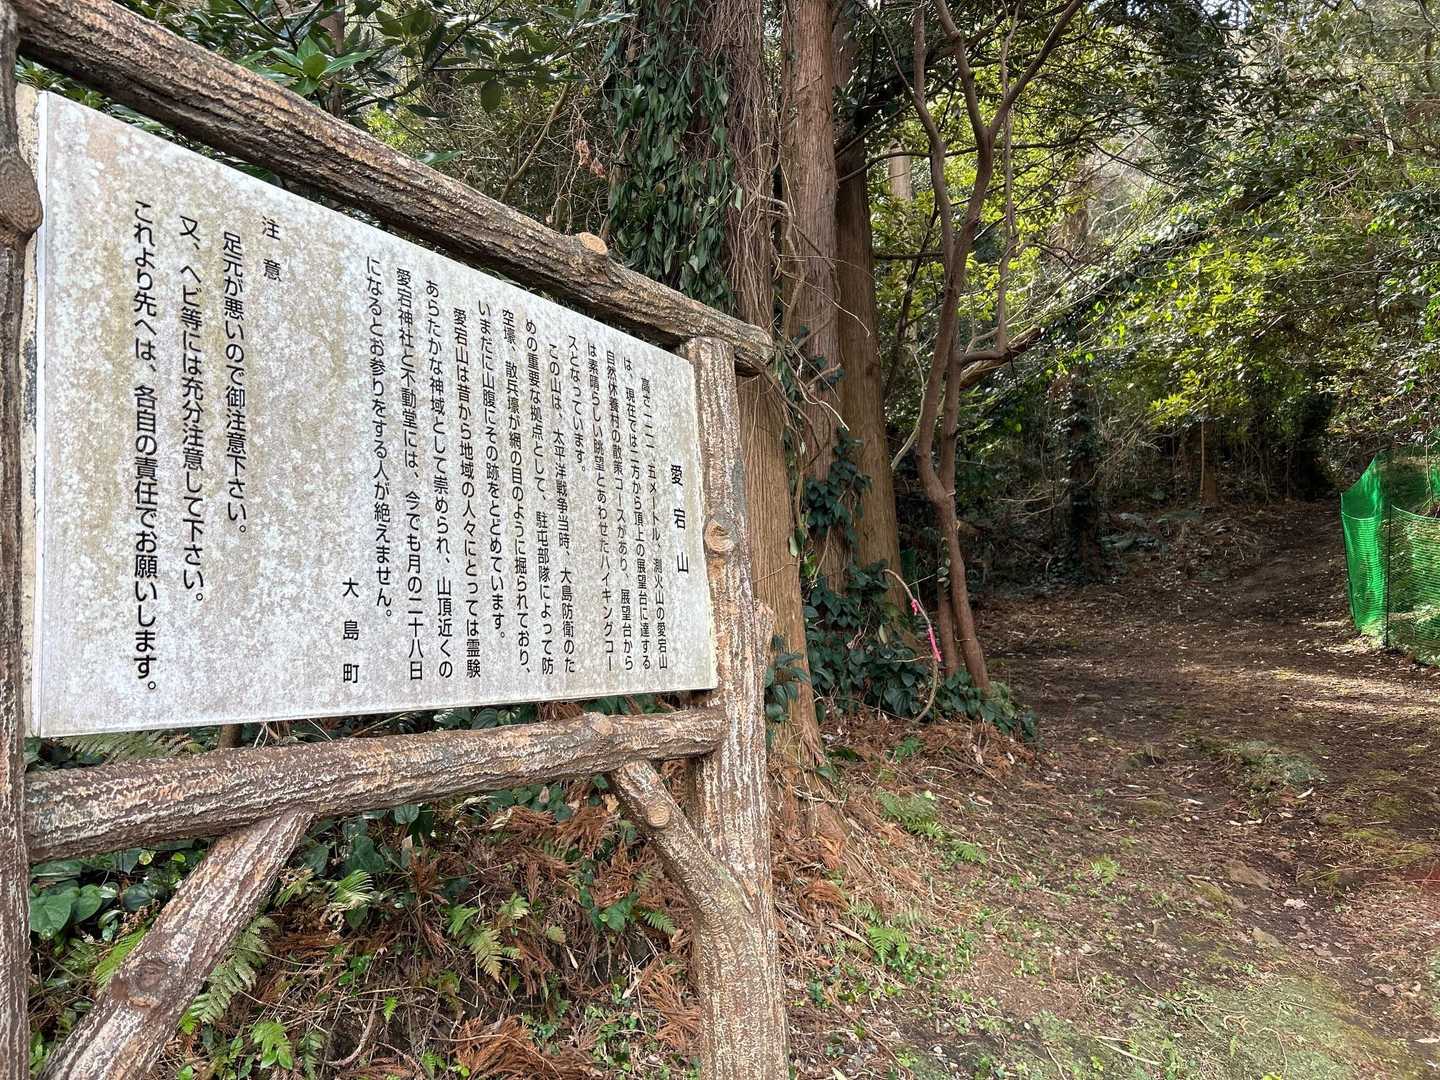 愛宕山
高さ二一一．五メートル、測火山の愛宕山
は、現在では二方から頂上の展望台に達する
自然休養村の散策コースがあり、展望台から
は素晴らしい眺望とあわせたハイキングコー
スとなっています。
この山は、太平洋戦争当時、大島防衛のた
めの重要な拠点として、駐屯部隊によって防
空壕、散兵壕が網の目のように掘られており、
いまだに山腹にその跡をとどめています。
愛宕山は昔から地域の人々にとっては霊験
あらたかな神域として崇められ、山頂近くの
愛宕神社と不動堂には、今でも月の二十八日
になるとお参りをする人が絶えません。
大島町
注意
足元が悪いので御注意下さい。
又、ヘビ等には充分注意して下さい。
これより先へは、各自の責任でお願いします。